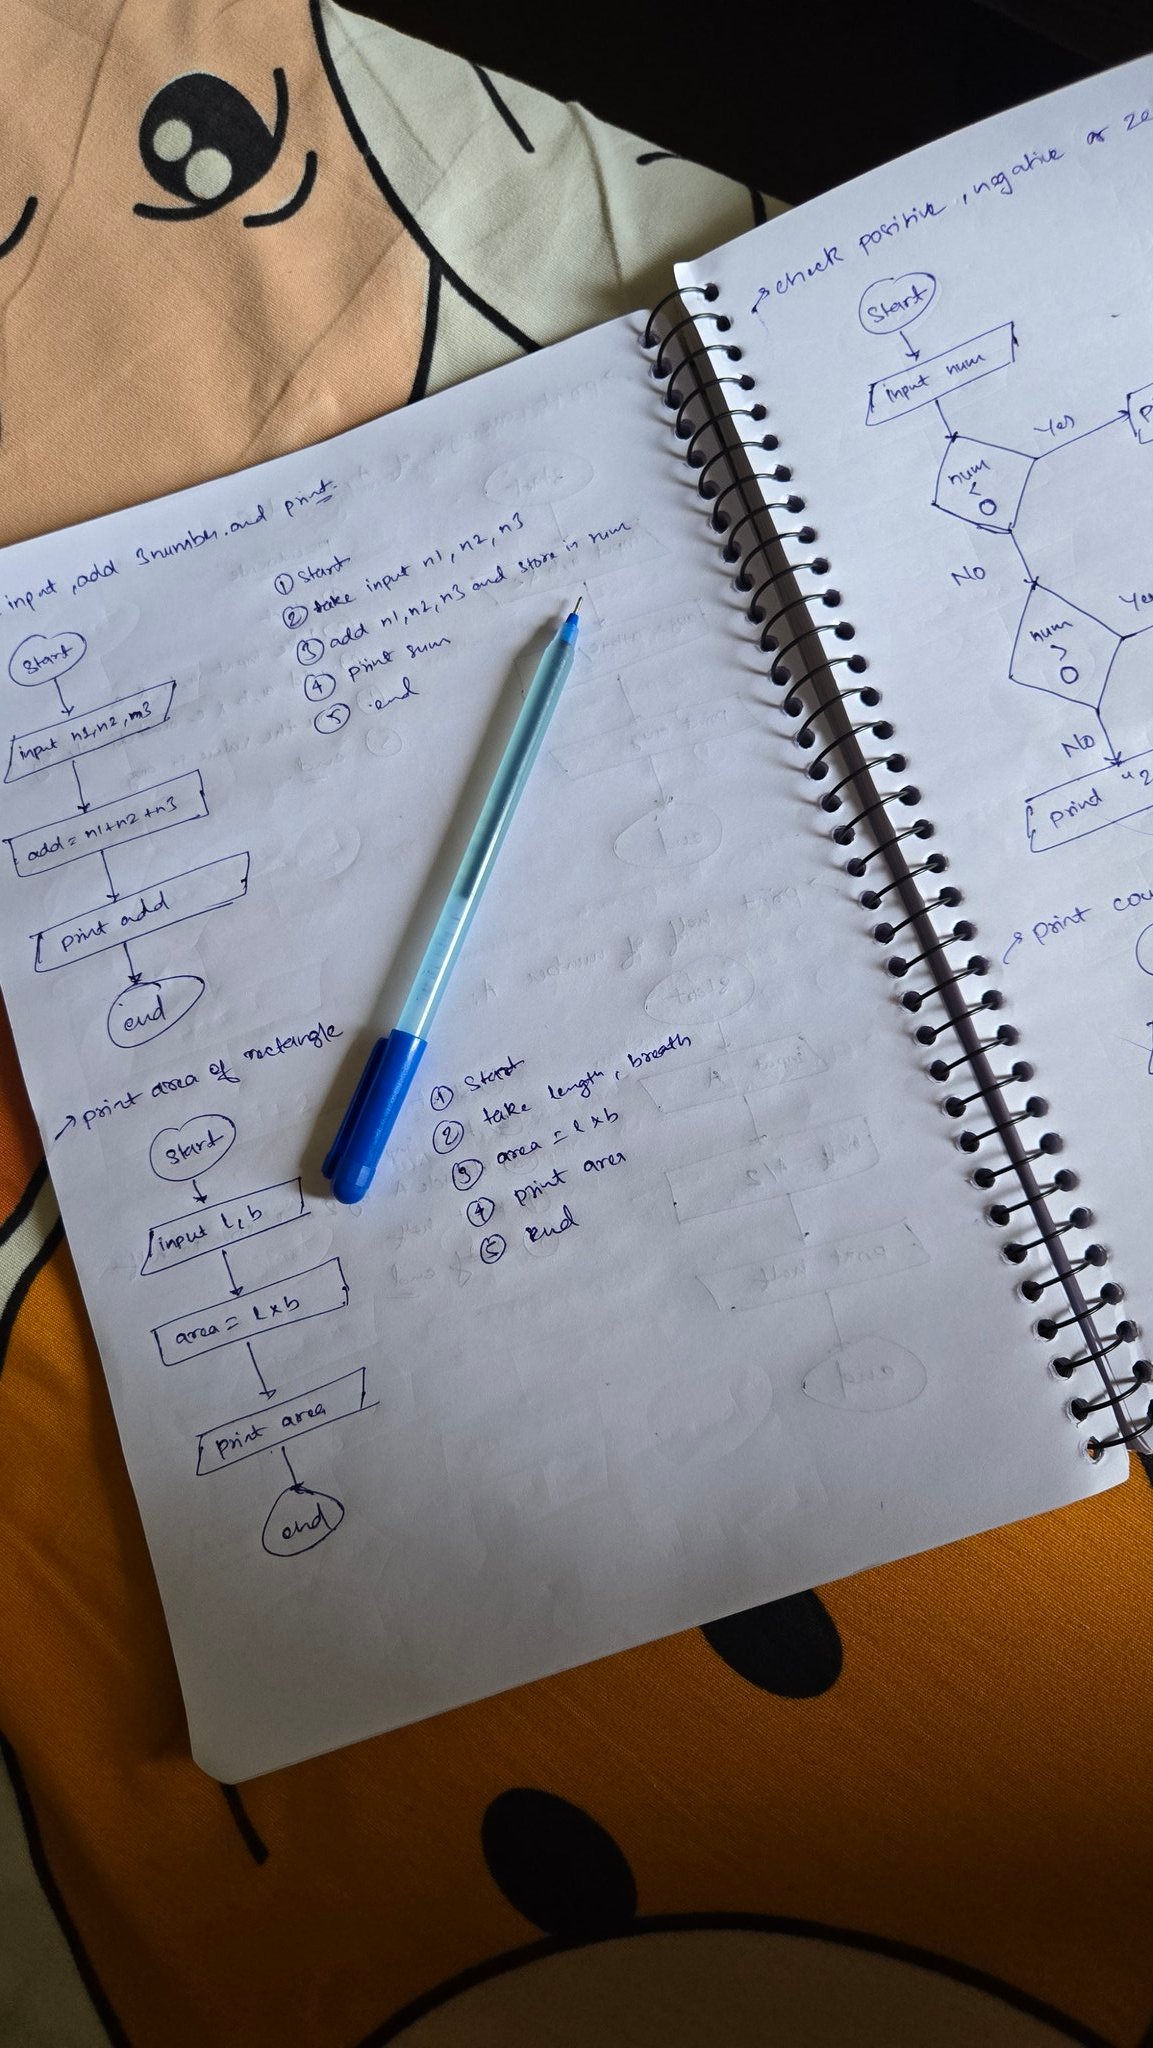 input, add 3 number. and print.
Start
input n1, n2, n3
add = n1+n2+n3
print add
end
① Start
② take input n1, n2, n3
③ add n1, n2, n3 and store in sum
④ print sum
⑤ end
→ print area of rectangle
Start
input l, b
area = l x b
print area
end
① Start
② take length, breath
③ area = l x b
④ print area
⑤ end
→ check positive, negative or ze
Start
input num
num
<
0
Yes
p
No
num
>
0
Ye
No
print "z
→ print cou